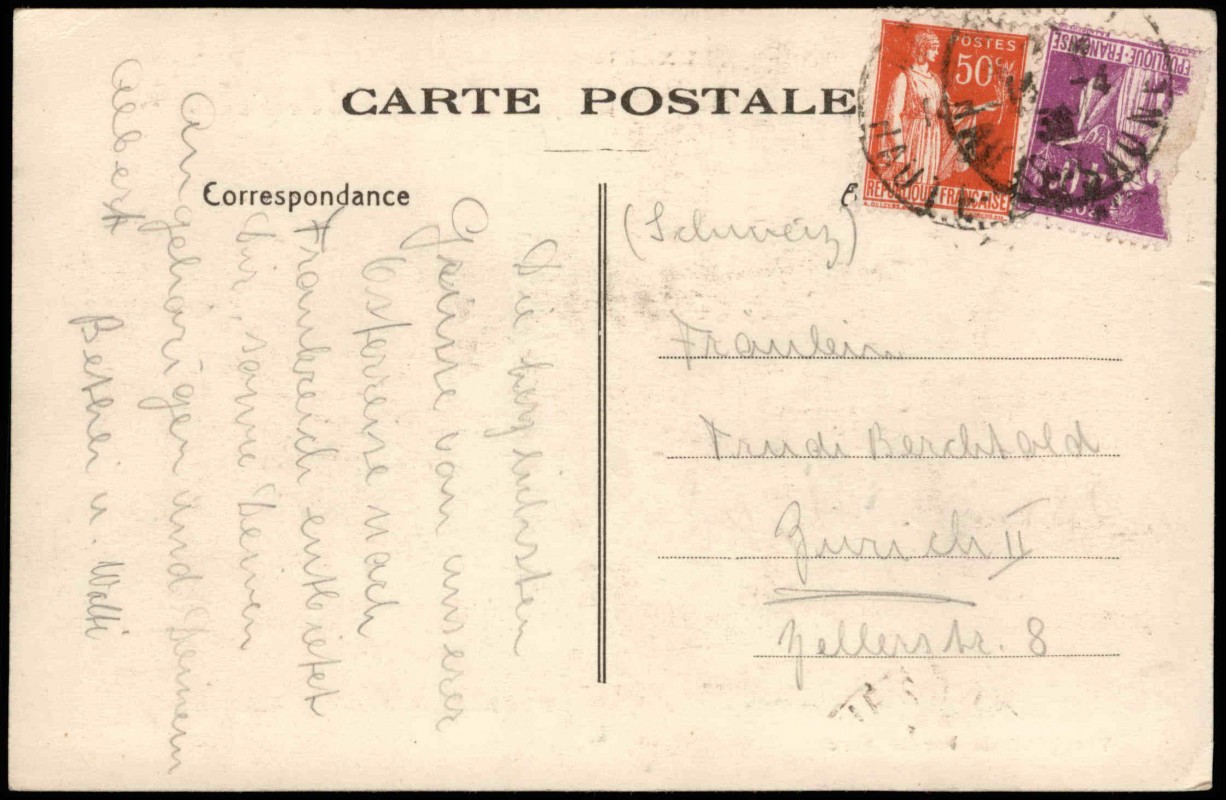 CARTE POSTALE
Correspondance
Die herzlichsten
Grüsse von unserer
Osterreise nach
Frankreich entbietet
Dir, sowie Deinen
Angehörigen und Deinem
Albert
Betheli u. Walti
(Schweiz)
Fräulein
Trudi Berchtold
Zürich II
Zellerstr. 8
POSTES
50c
REPUBLIQUE FRANÇAISE
REPUBLIQUE-FRANÇAISE
-4
38